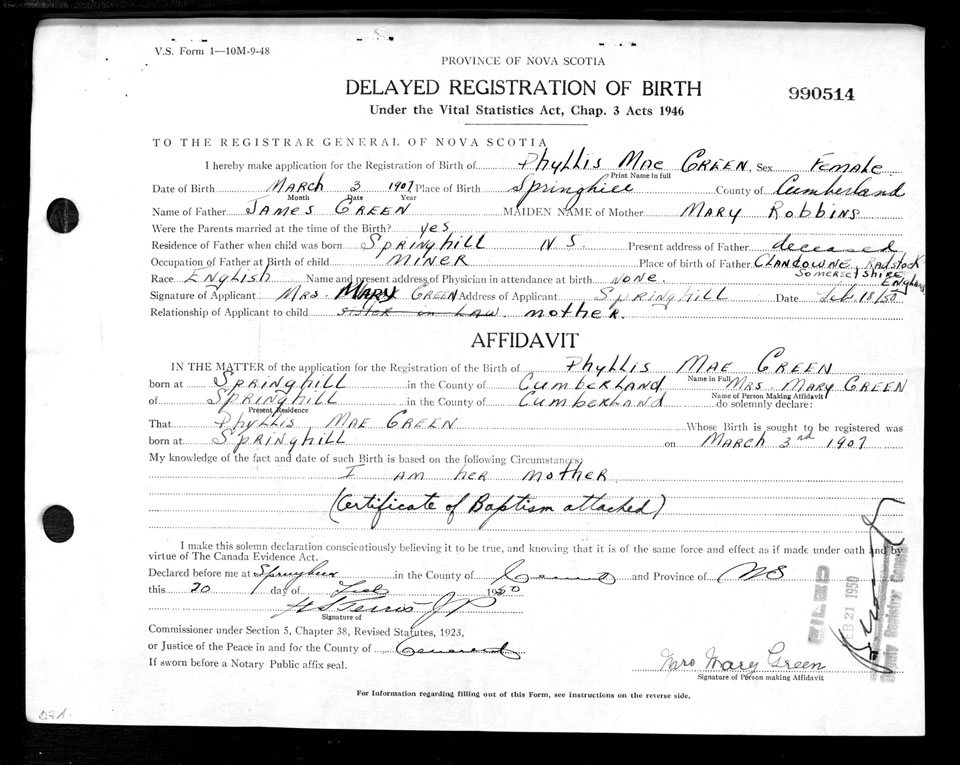 V.S. Form 1—10M-9-48
PROVINCE OF NOVA SCOTIA
DELAYED REGISTRATION OF BIRTH
990514
Under the Vital Statistics Act, Chap. 3 Acts 1946
TO THE REGISTRAR GENERAL OF NOVA SCOTIA
I hereby make application for the Registration of Birth of Phyllis Mae Green, Sex Female.
Print Name in full
Date of Birth March 3 1907 Place of Birth Springhill County of Cumberland
Month Date Year
Name of Father James Green MAIDEN NAME of Mother Mary Robbins
Were the Parents married at the time of the Birth? yes
Residence of Father when child was born Springhill N S. Present address of Father deceased
Occupation of Father at Birth of child Miner Place of birth of Father Clandowne Radstock
Somersetshire England
Race English Name and present address of Physician in attendance at birth none.
Signature of Applicant Mrs. Mary Green Address of Applicant Springhill Date Feb. 18/50
Relationship of Applicant to child sister in law mother.
AFFIDAVIT
IN THE MATTER of the application for the Registration of the Birth of Phyllis Mae Green
Name in Full
born at Springhill in the County of Cumberland Mrs. Mary Green
Name of Person Making Affidavit
of Springhill in the County of Cumberland do solemnly declare:
Present Residence
That Phyllis Mae Green Whose Birth is sought to be registered was
born at Springhill on March 3rd 1907
My knowledge of the fact and date of such Birth is based on the following Circumstances:
I am her mother
(Certificate of Baptism attached)
I make this solemn declaration conscientiously believing it to be true, and knowing that it is of the same force and effect as if made under oath and by
virtue of The Canada Evidence Act.
Declared before me at Springhill in the County of and Province of NS
this 20 day of Feb 1950
JP
Signature of
Commissioner under Section 5, Chapter 38, Revised Statutes, 1923,
or Justice of the Peace in and for the County of
If sworn before a Notary Public affix seal.
Mrs Mary Green
Signature of Person making Affidavit
FILED
FEB 21 1950
Deputy Registrar General
For Information regarding filling out of this Form, see instructions on the reverse side.